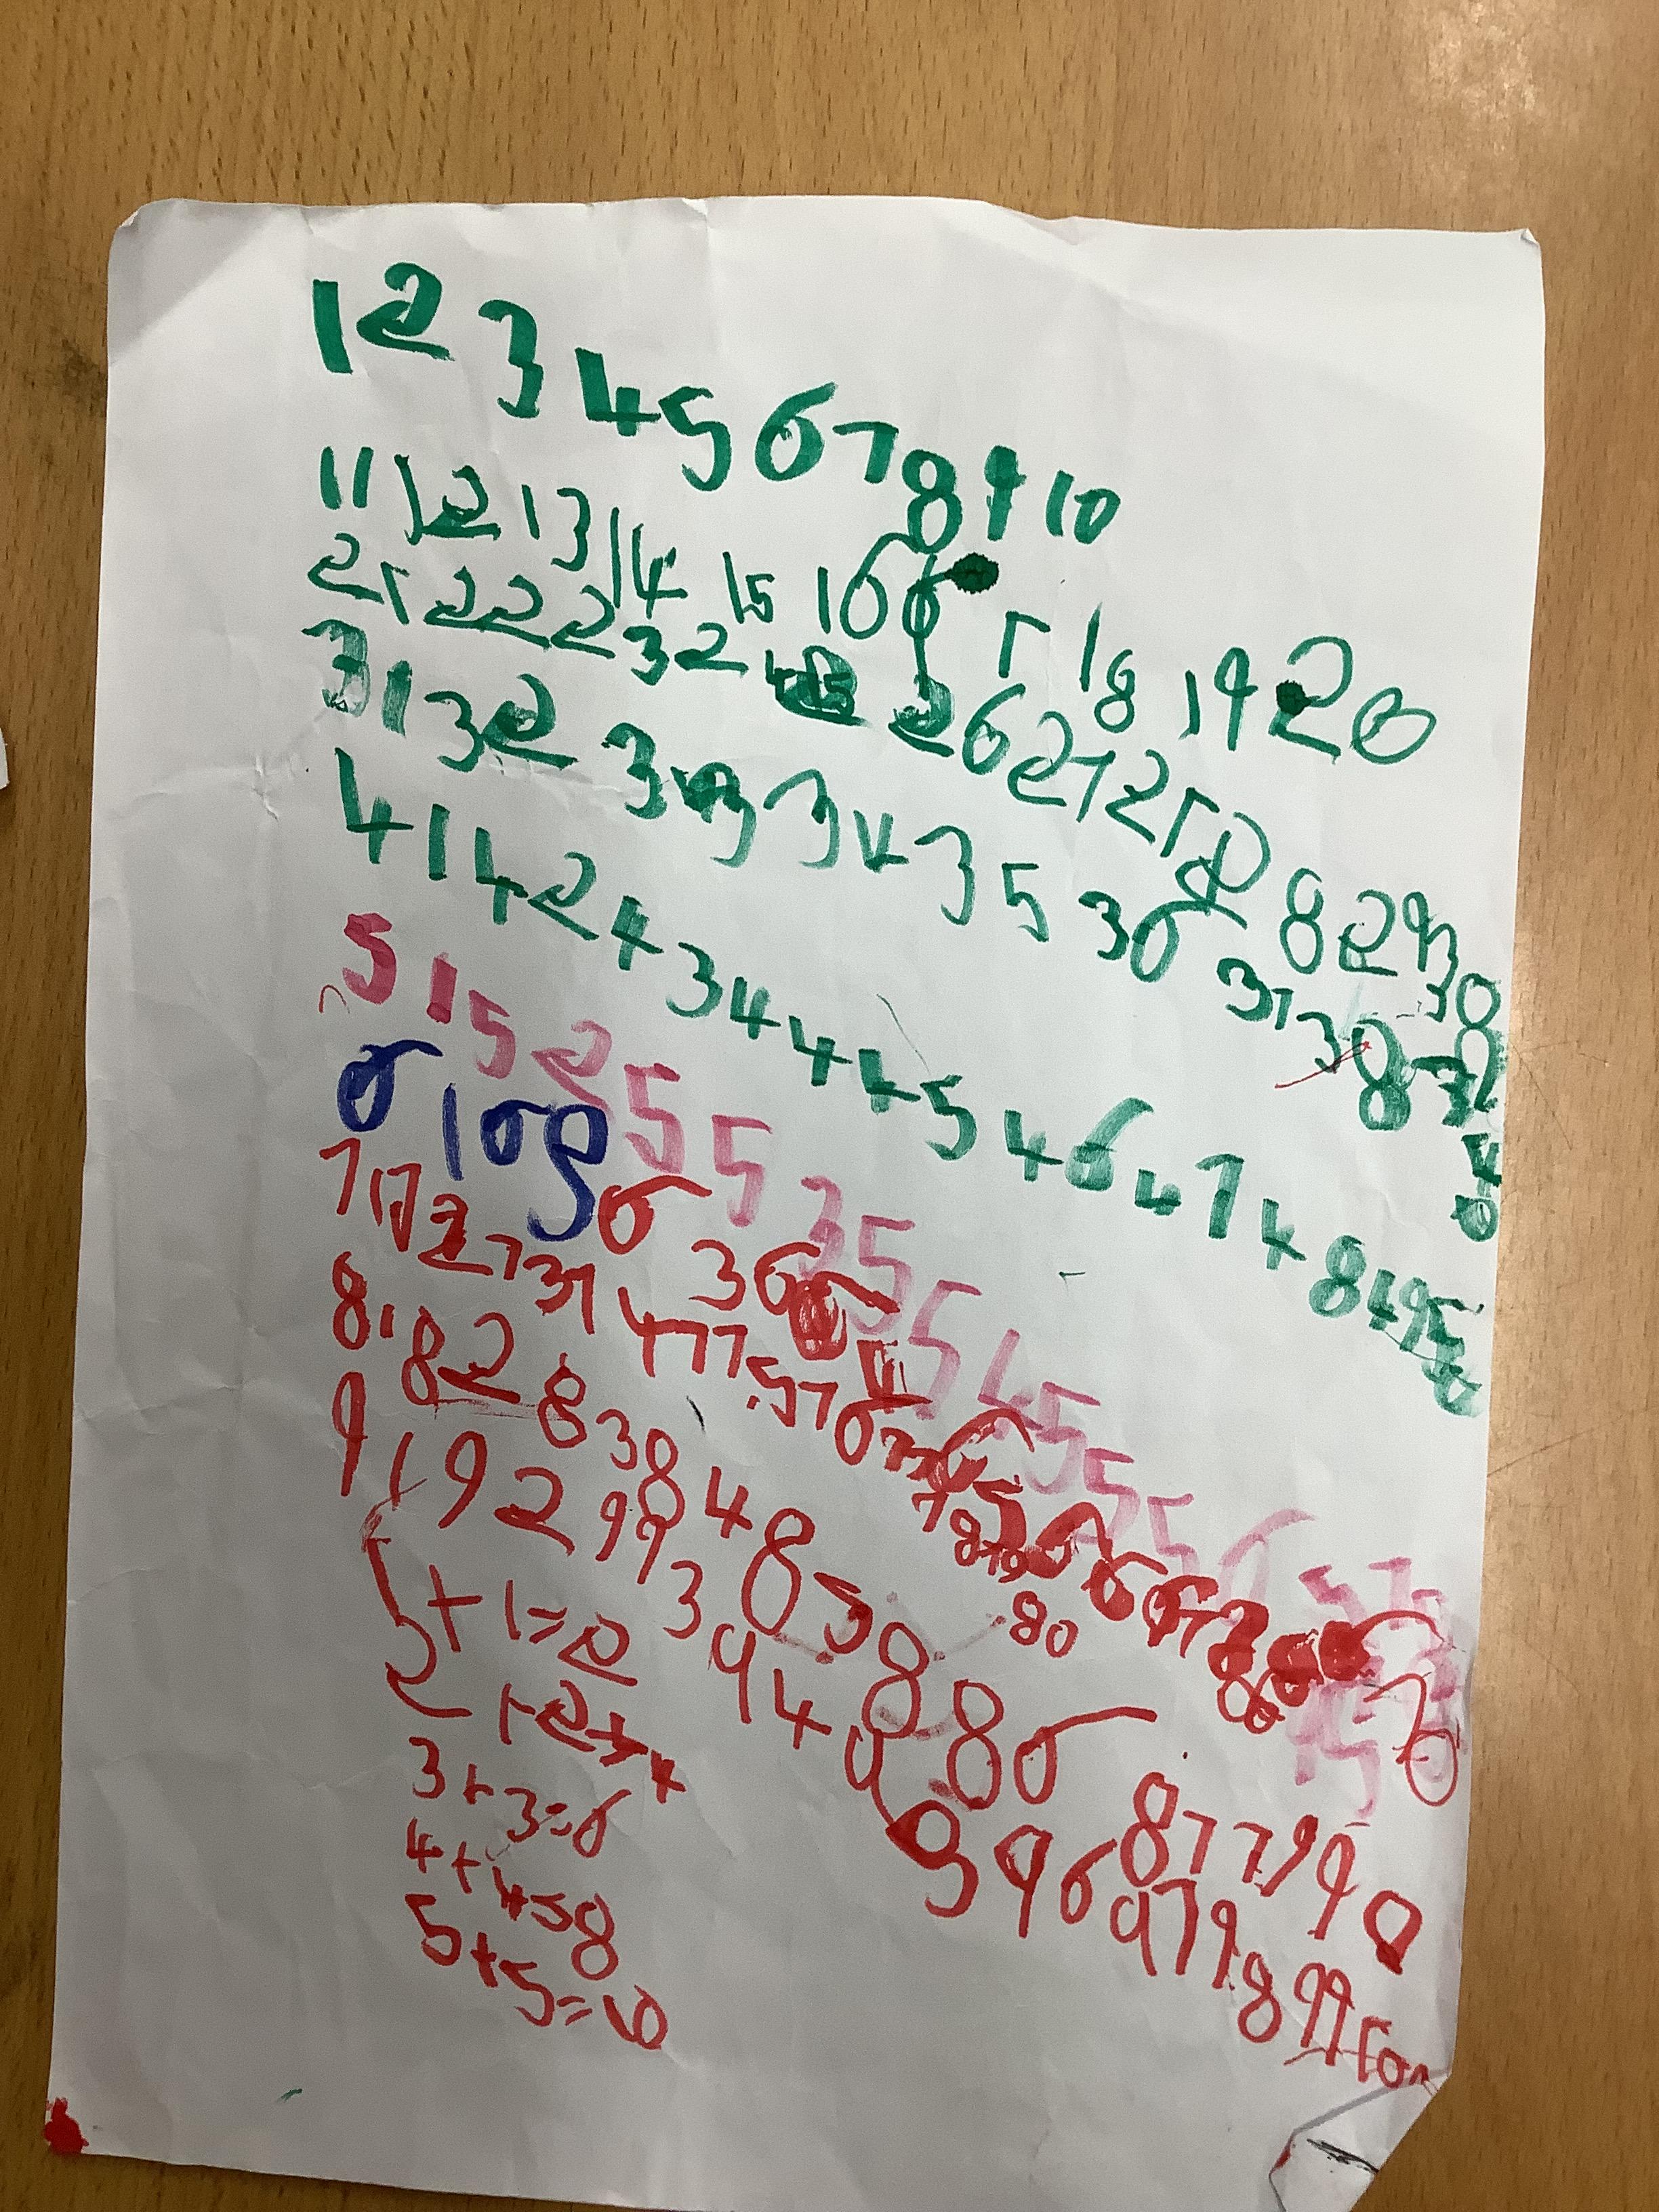 1 2 3 4 5 6 7 8 9 10
11 12 13 14 15 16 18 19 20
21 22 23 24 26 27 28 29 30
31 32 33 34 35 36 37 38 39 40
41 42 43 44 45 46 47 48 49 50
51 52 53 54 55 56 57
61 62 63 64 65 66 67 70
71 72 73 74 75 76 77 78 79 80
81 82 83 84 85 86 87 90
91 92 93 94 95 96 97 98 99 100
1+1=2
2+2=4
3+3=6
4+4=8
5+5=10